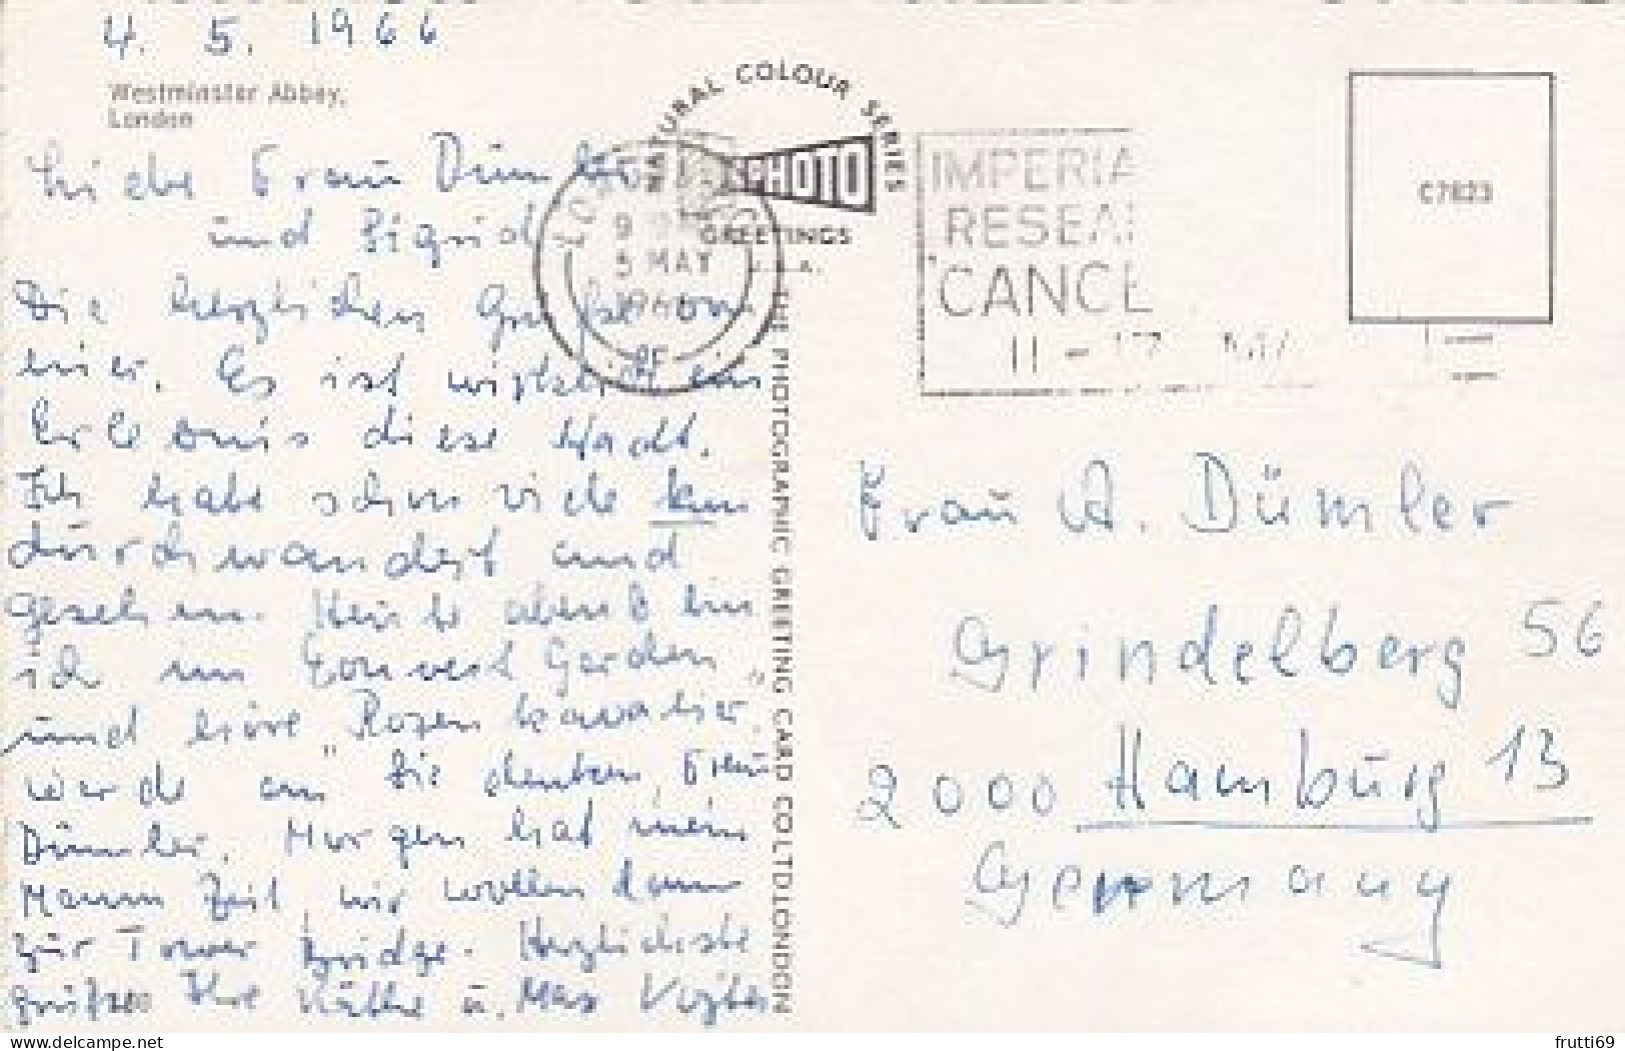 4. 5. 1966
Westminster Abbey,
London
Liebe Frau Dümler
und Sigrid
Die herzlichen Grüße von
hier. Es ist wirklich ein
Erlebnis diese Stadt.
Ich habe schon viele km
durchwandert und
gesehen. Heute abend bin
ich im Convent Garden
und höre "Rosenkavalier"
werde an Sie denken, Frau
Dümler. Morgen hat mein
Mann Zeit, wir wollen dann
zur Tower Bridge. Herzlichste
Grüße Ihre Käthe u. Max
NATURAL COLOUR SERIES
PHOTO
GREETINGS
LONDON
9
5 MAY
1966
THE PHOTOGRAPHIC GREETING CARD CO. LTD. LONDON
IMPERIA
RESEA
CANCE
11 - 17 MA
C7823
Frau A. Dümler
Grindelberg 56
2000 Hamburg 13
Germany
delcampe.net
frutti69